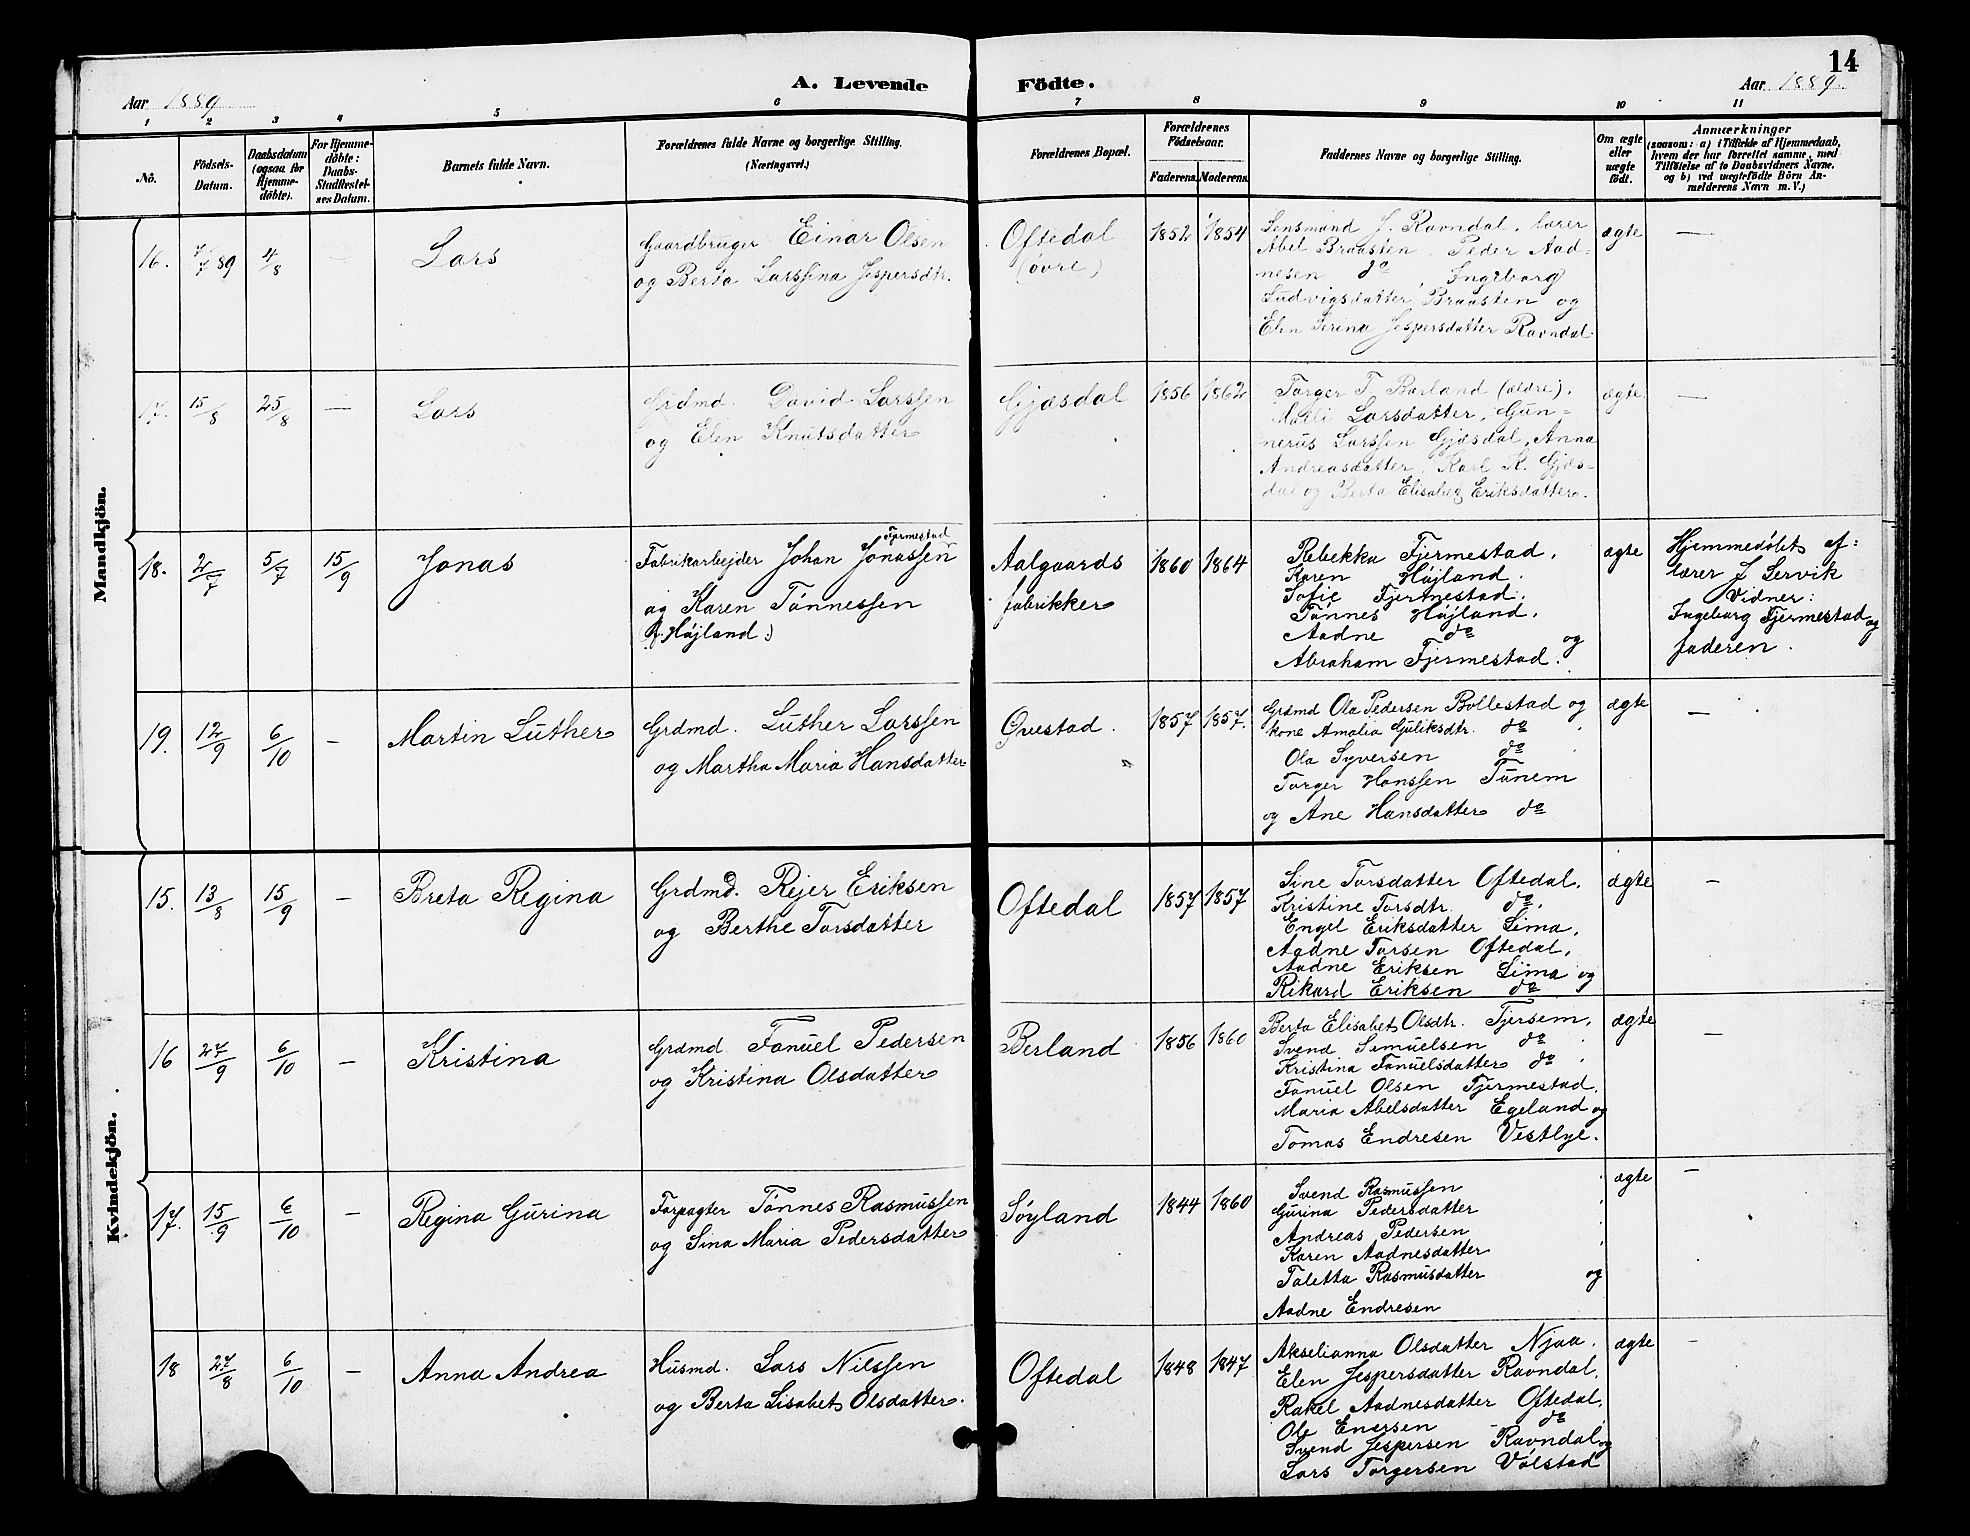 14
A. Levende Födte.
Aar 1889
Aar 1889.
1 2 3 4 5 6 7 8 9 10 11
No.
Födsels-Datum.
Daabsdatum (ogsaa for Hjemme-döbte).
For Hjemme-döbte: Daabs-Stadfæstel-ses Datum.
Barnets fulde Navn.
Forældrenes fulde Navne og borgerlige Stilling.
(Næringsvei.)
Forældrenes Bopæl.
Forældrenes Födselsaar.
Faderens. Moderens.
Faddernes Navne og borgerlige Stilling.
Om ægte eller uægte födt.
Anmærkninger
(saasom: a) i Tilfælde af Hjemmedaab,
hvem der har forrettet samme, med
Tilföielse af to Daabsvidners Navne,
og b) ved uægtefödte Börn An-
melderens Navn m. V.)
Mandkjön.
16. 7/7 89 4/8 Lars
Gaardbruger Einar Olsen
og Berta Larssina Jespersdtr.
Oftedal
(øvre)
1852 1854
Lensmand J. Ravndal, lærer
Abel Braasten, Peder Aad-
nesen do, Ingeborg
Ludvigsdatter Braasten og
Elen Serina Jespersdatter Ravndal.
ægte —
17. 15/8 25/8 — Lars
Grdmd. David Larssen
og Elen Knutsdatter
Gjæsdal
1856 1862
Torger T. Barland (ældre),
Malli Larsdatter, Gun-
nerus Larssen Gjæsdal, Anna
Andreasdatter, Karl K. Gjæs-
dal og Berta Elisabet Eriksdatter.
ægte —
18. 2/7 5/7 15/9 Jonas
Fjermestad
Fabrikarbejder Johan Jonassen
og Karen Tønnessen
(f. Højland:)
Aalgaards
fabrikker
1860 1864
Rebekka Fjermestad,
Karen Højland,
Sofie Fjermestad,
Tønnes Højland,
Aadne do og
Abraham Fjermestad.
ægte
Hjemmedøbt af
lærer J Servik
Vidner:
Ingeborg Fjermestad og
faderen.
19. 12/9 6/10 — Martin Luther
Grdmd. Luther Larssen
og Martha Maria Hansdatter
Qvestad.
1857 1857.
Grdmd Ola Pedersen Bollestad og
kone Amalia Guliksdtr. do
Ola Syversen do
Torger Hanssen Tunem
og Ane Hansdatter do
ægte —
Kvindekjön.
15. 13/8 15/9 — Breta Regina
Grdmd. Rejer Eriksen
og Berthe Torsdatter
Oftedal
1857 1857
Sine Torsdatter Oftedal,
Kristine Torsdtr. do,
Engel Eriksdatter Lima,
Aadne Torsen Oftedal,
Aadne Eriksen Lima og
Rikard Eriksen do
ægte —
16 27/9 6/10 — Kristina
Grdmd. Fanuel Pedersen
og Kristina Olsdatter
Berland
1856 1860
Berta Elisabet Olsdtr. Tjersem,
Svend Samuelsen do
Kristina Fanuelsdatter do
Fanuel Olsen Fjermestad,
Maria Abelsdatter Egeland og
Tomas Endresen Vestlye.
ægte —
17. 15/9 6/10 — Regina Gurina
Forpagter Tønnes Rasmussen
og Sina Maria Pedersdatter
Søyland
1844 1860
Svend Rasmussen
Gurina Pedersdatter
Andreas Pedersen
Karen Aadnesdatter
Taletta Rasmusdatter og
Aadne Endresen
ægte —
18 27/8 6/10 — Anna Andrea
Husmd. Lars Nilssen
og Berta Lisabet Olsdatter.
Oftedal
1848 1847
Akselianna Olsdatter Njaa,
Elen Jespersdatter Ravndal,
Rakel Aadnesdatter Oftedal,
Ole Enersen do
Svend Jespersen Ravndal og
Lars Torgersen Vølstad
ægte —